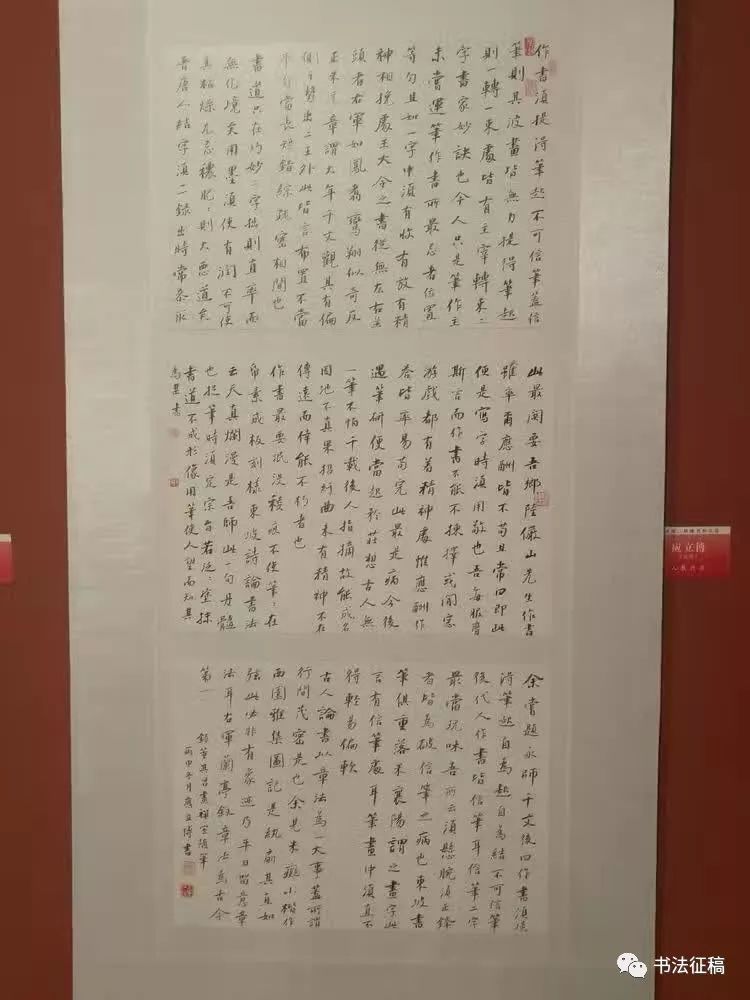 作書須提得筆起不可信筆蓋信
筆則其波畫皆無力提得筆起
則一轉一束處皆有主宰轉束二
字書家妙訣也今人只是筆作主
未嘗運筆作書所最忌者位置
等勻且如一字中須有收有放有精
神相挽處王大令之書從無左右並
頭者右軍如鳳翥鸞翔似奇反
正米元章謂大年千文觀其有偏
側之勢出二王外此皆言布置不當
平勻當長短錯綜疏密相間也
書道只在巧妙二字拙則直率而
無化境矣用墨須使有潤不可使
其枯燥尤忌穠肥肥則大惡道矣
晉唐人結字須一一錄出時常參取
此最關要吾鄉陸儼山先生作書
雖率爾應酬皆不苟且常曰即此
便是寫字時須用敬也吾每服膺
斯言而作書不能不揀擇或閒窗
游戲都有著精神處惟應酬作
答皆率易苟完此最是病今後
遇筆研便當起矜莊想古人無
一筆不怕千載後人指摘故能成名
因地不真果招紆曲未有精神不在
傳遠而倖能不朽者也
作書最要泯沒稜痕不使筆筆在
帋素成板刻樣東坡詩論書法
云天真爛漫是吾師此一句丹髓
也捉筆時須定宗旨若泛泛塗抹
書道不成形像用筆使人望而知其
為某書
余嘗題永師千文後曰作書須提
得筆起自為起自為結不可信筆
後代人作書皆信筆耳信筆二字
最當玩味吾所云須懸腕須正鋒
者皆為破信筆之病也東坡書
筆俱重落米襄陽謂之畫字此
言有信筆處耳筆畫中須直不
得輕易偏軟
古人論書以章法為一大事蓋所謂
行間茂密是也余見米癡小楷作
西園雅集圖記是紈扇其直如
弦此必非有家迹乃平日留意章
法耳右軍蘭亭敘章法為古今
第一
錄董其昌畫禪室隨筆
丙申冬月龐立博書
龐立博
书法征稿